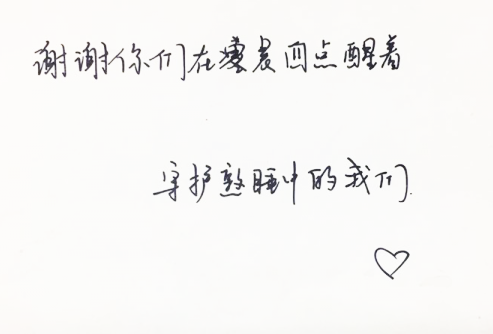 谢谢你们在凌晨四点醒着
守护熟睡中的我们.